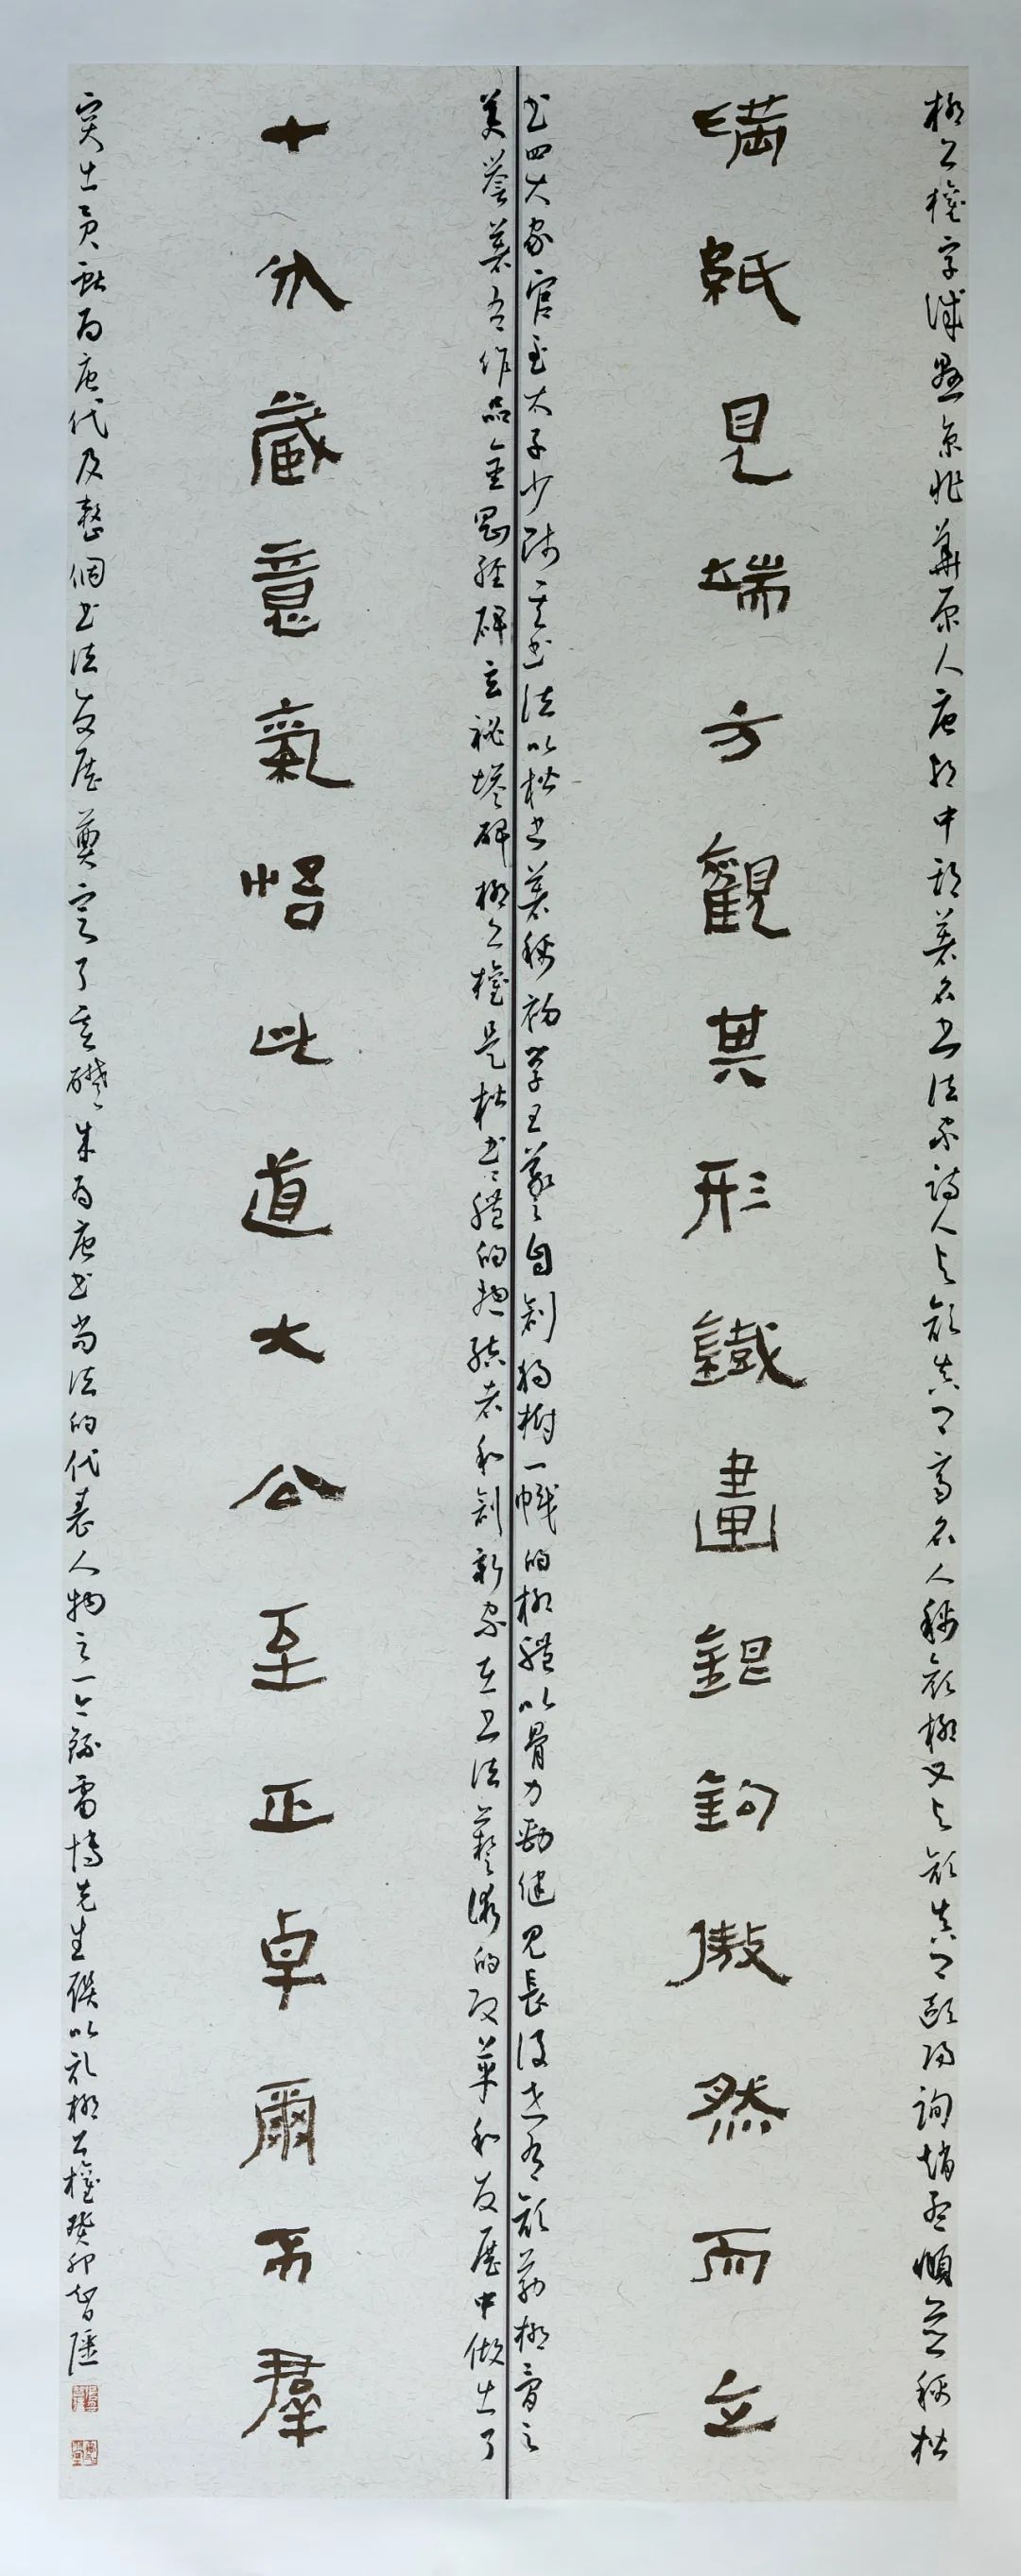 柳公權字誠懸京兆華原人唐朝中期著名書法家詩人與顔真卿齊名人稱顔柳又與顔真卿歐陽詢趙孟頫並稱楷
滿紙見端方觀其形鐵畫銀鉤傲然而立
书四大家官至太子少師其书法以楷書著稱初學王羲之自創獨樹一幟的柳體以骨力勁健見長後世有顔筋柳骨之
美譽著有作品金剛經碑玄祕塔碑柳公權是楷書體的總結者和創新家在書法藝術的改革和发展中做出了
十分藏意氣悟此道大公至正卓爾不羣
突出貢獻为唐代及整個书法发展奠定了基礎成为唐书尚法的代表人物之一
先生聯以礼柳公權癸卯